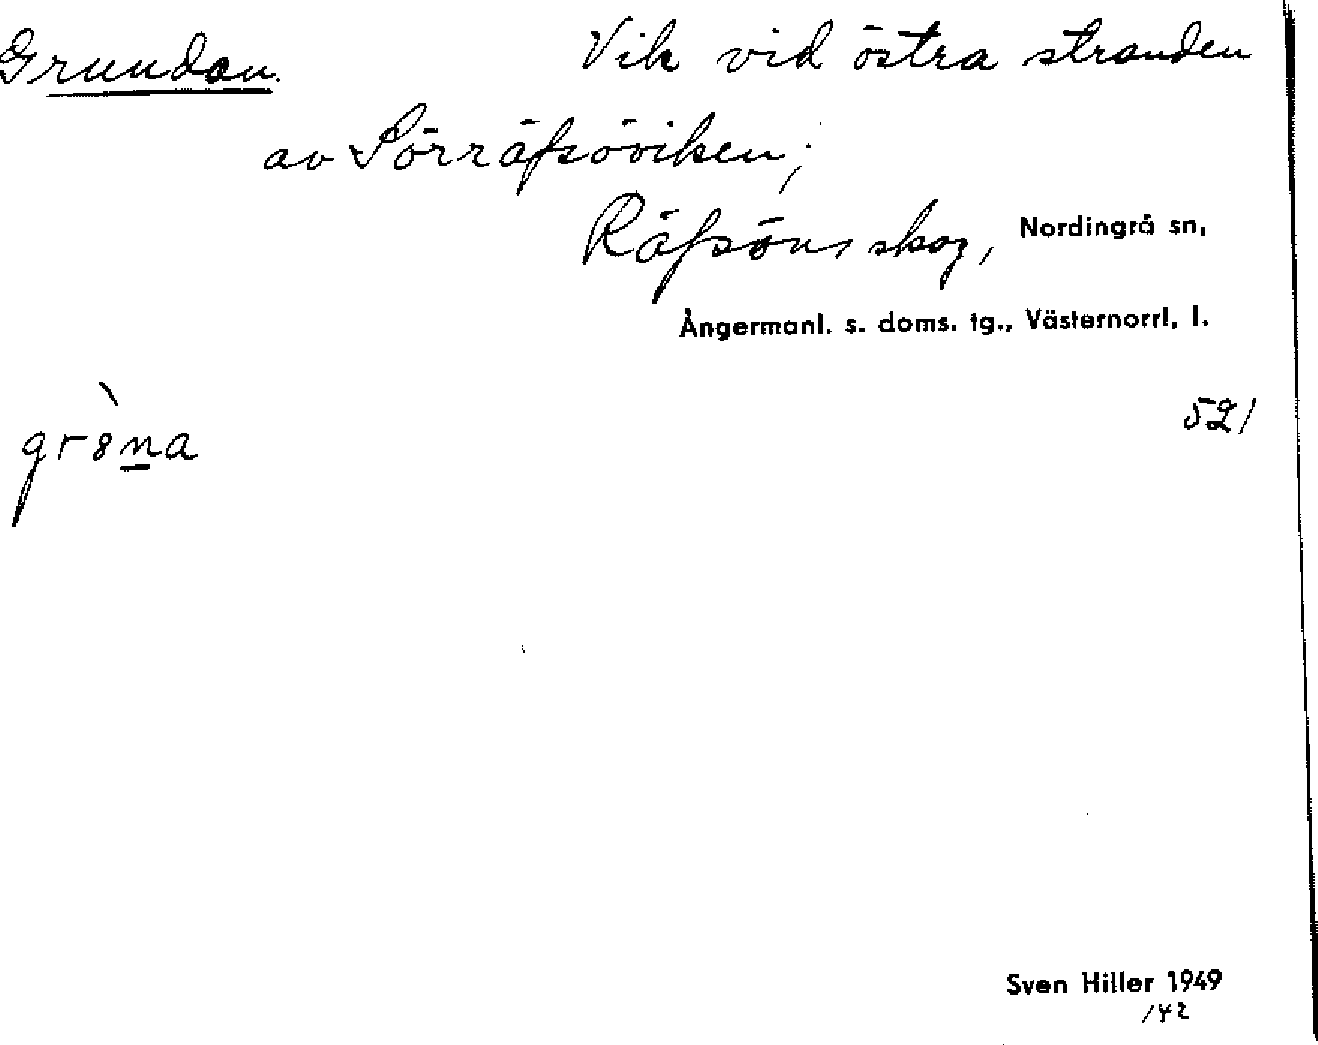 Grundan. Vik vid östra stranden
av Sörräfsöviken;
Räfsöns skog, Nordingrå sn,
Ångermanl. s. doms. tg., Västernorrl. l.
521
gr8̀na
Sven Hiller 1949
142